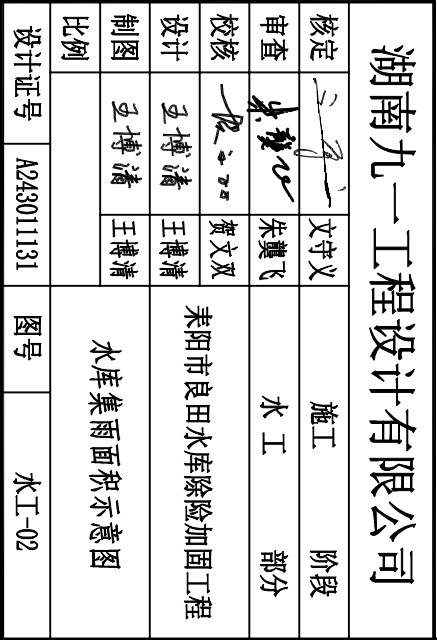 湖南九一工程设计有限公司
核定 文守义 施工 阶段
审查 朱龑飞 水工 部分
校核 贺文双 耒阳市良田水库除险加固工程
设计 王博清 王博清
制图 王博清 王博清 水库集雨面积示意图
比例
设计证号 A243011131 图号 水工-02